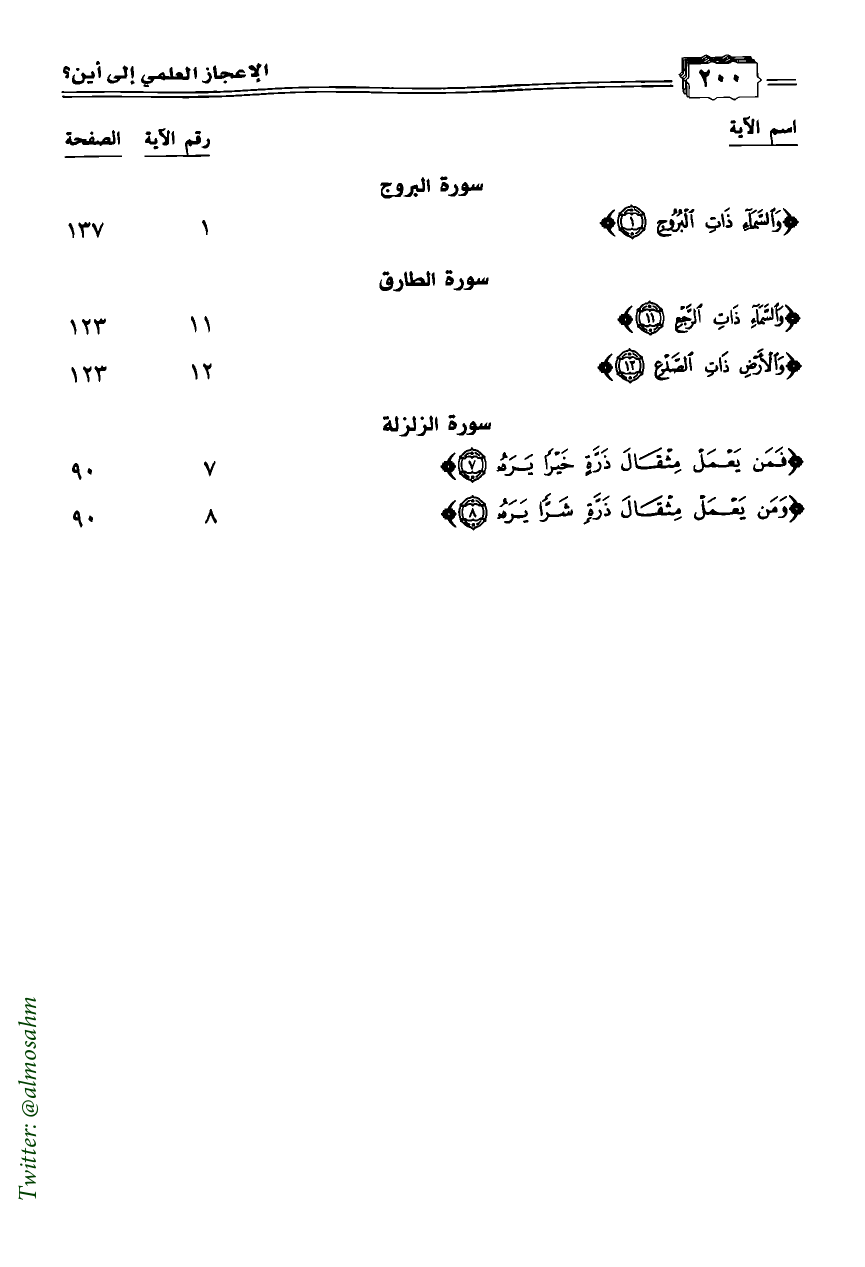 ٢٠٠ الإعجاز العلمي إلى أين؟
اسم الآية رقم الآية الصفحة
سورة البروج
﴿وَٱلسَّمَآءِ ذَاتِ ٱلْبُرُوجِ ١﴾ ١ ١٣٧
سورة الطارق
﴿وَٱلسَّمَآءِ ذَاتِ ٱلرَّجْعِ ١١﴾ ١١ ١٢٣
﴿وَٱلْأَرْضِ ذَاتِ ٱلصَّدْعِ ١٢﴾ ١٢ ١٢٣
سورة الزلزلة
﴿فَمَن يَعْمَلْ مِثْقَالَ ذَرَّةٍ خَيْرًا يَرَهُۥ ٧﴾ ٧ ٩٠
﴿وَمَن يَعْمَلْ مِثْقَالَ ذَرَّةٍ شَرًّا يَرَهُۥ ٨﴾ ٨ ٩٠
Twitter: @almosahm